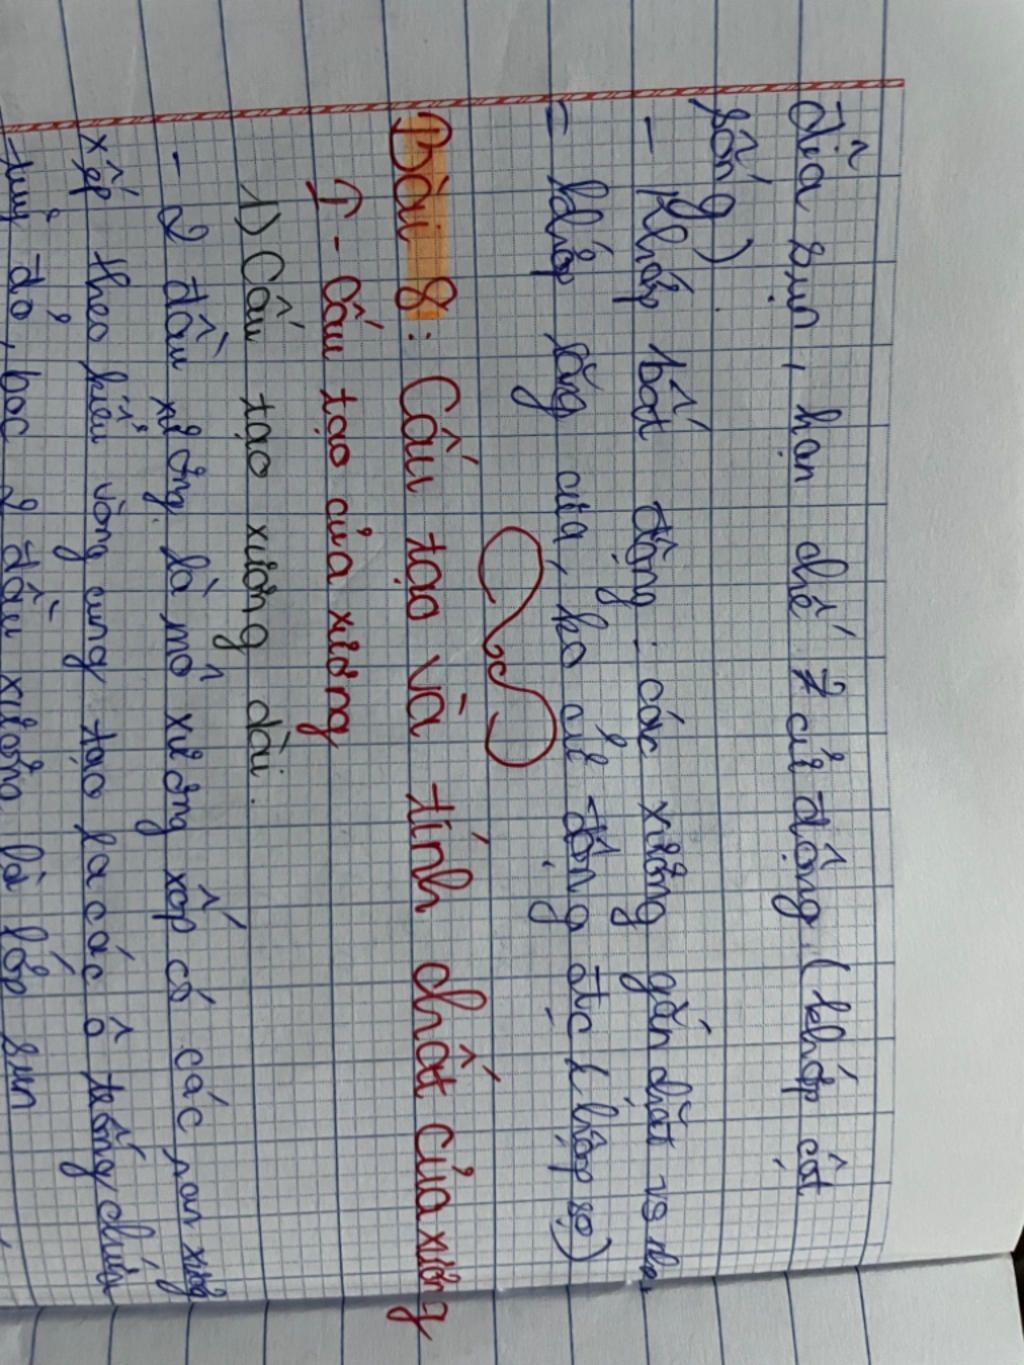 đĩa sụn, hạn chế ≠ cử động (khớp cột
sống).
- Khớp bất động: các xương gắn chặt vs nhau
= khớp răng cưa, ko cử động đc (khớp sọ)
Bài 8: Cấu tạo và tính chất của xương
I - Cấu tạo của xương
1) Cấu tạo xương dài.
- 2 đầu xương là mô xương xốp có các nan xương
xếp theo kiểu vòng cung tạo ra các ô trống chứa
tuỷ đỏ, bọc 2 đầu xương là lớp sụn